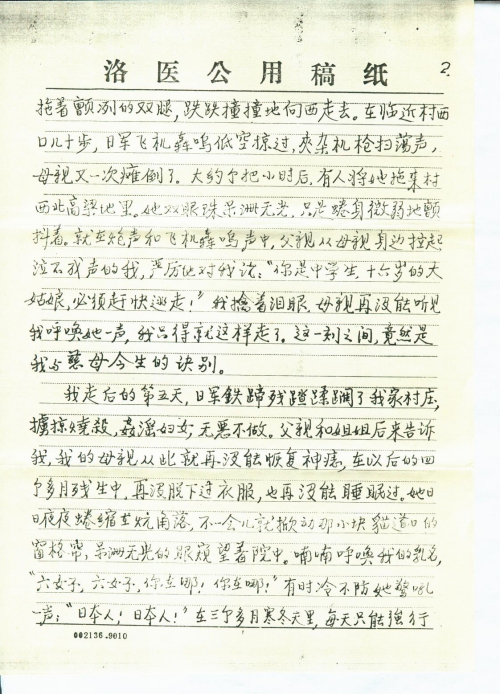 洛医公用稿纸
2.
拖着颤冽的双腿，跌跌撞撞地向西走去。在临近村西
口几十步，日军飞机轰鸣低空掠过，夹杂机枪扫荡声，
母亲又一次瘫倒了。大约个把小时后，有人将她拖来村
西北高粱地里。她双眼珠呆涩无光，只是蜷身微弱地颤
抖着。就在炮声和飞机轰鸣声中，父亲从母亲身边拉起
泣不成声的我，严厉地对我说：“你是中学生，十六岁的大
姑娘，必须赶快逃走！”我擒着泪眼，母亲再没能听见
我呼唤她一声，我只得就这样走了。这一别之间，竟然是
我与慈母今生的诀别。
我走后的第五天，日军鉄蹄残踏蹂躏了我家村庄，
擄掠燒殺，姦淫妇女，无悪不做。父亲和姐姐后来告诉
我，我的母亲从此就再没能恢复神痣，在以后的四
个多月残生中，再没脱下过衣服，也再没能睡眠过。她日
日夜夜蜷缩在炕角落，不一会儿就掀动那小块貓道口的
窗格帘，呆涩无光的眼窥望着院中。喃喃呼唤我的乳名，
“六女子，六女子，你在哪！你在哪！”有时冷不防她驚吼
一声：“日本人！日本人！”在三个多月寒冬天里，每天只能強行
002136.9010